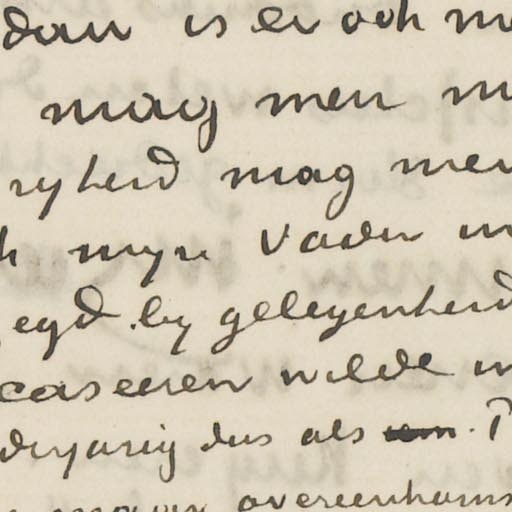 dan is er ook
mag men
ryheid mag men
h myn Vader
egd by gelegenheid
caseeren wilde
derjarig dus als
overeenkoms